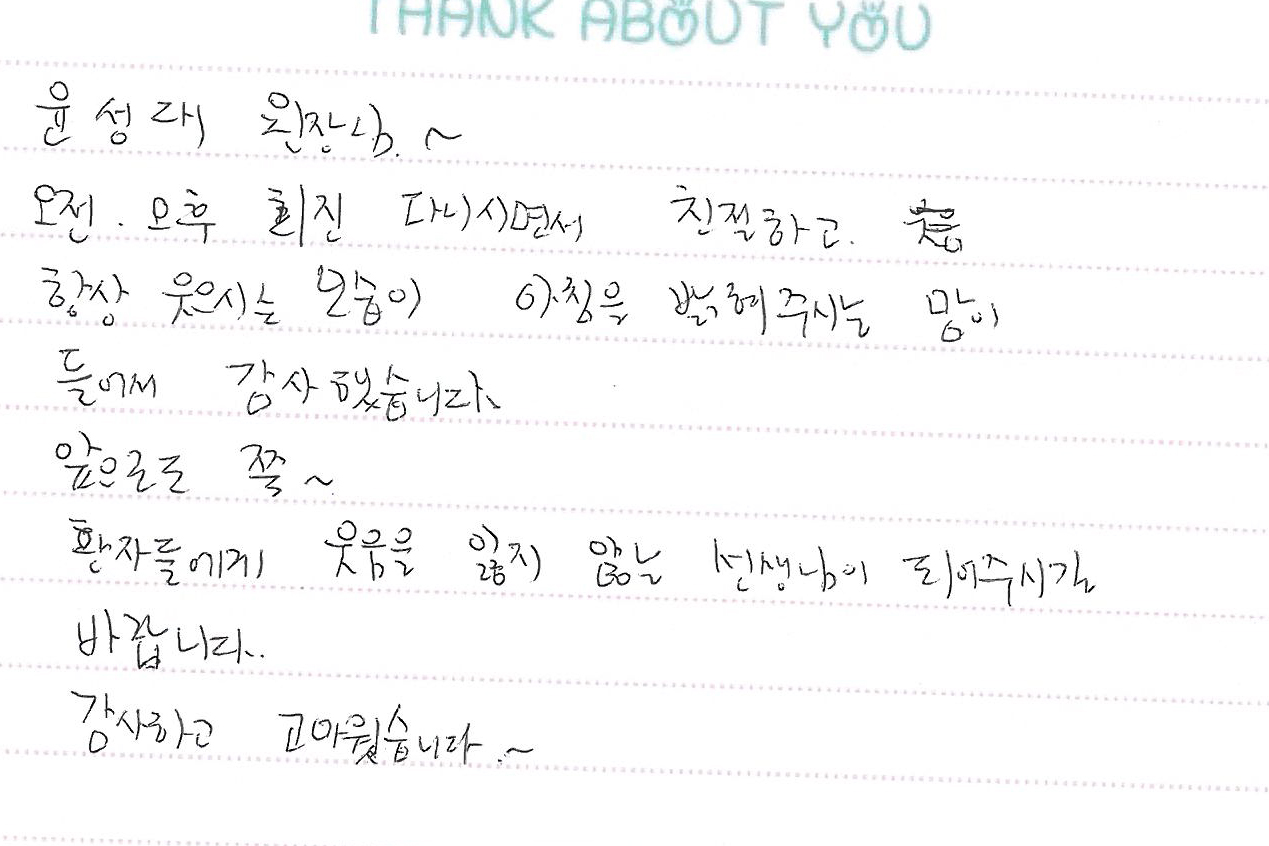 THANK ABOUT YOU
윤성대 원장님.~
오전. 오후 회진 다니시면서 친절하고.
항상 웃으시는 모습이 아침을 밝혀주시는 맘이
들어서 감사했습니다.
앞으로도 쭉~
환자들에게 웃음을 잃지 않는 선생님이 되어주시길
바랍니다..
감사하고 고마웠습니다.~